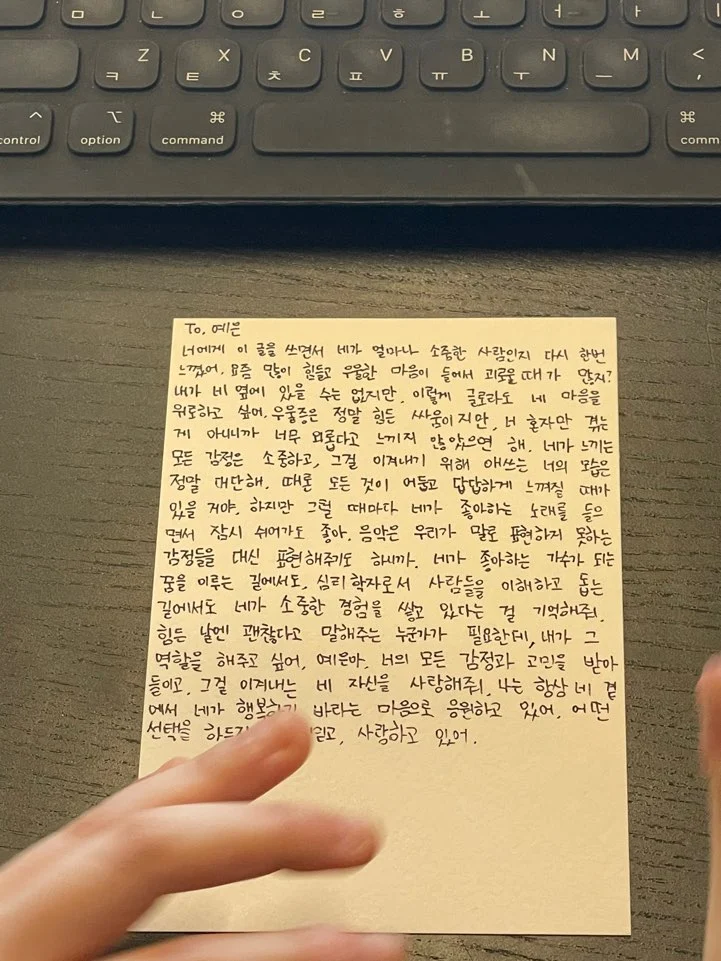 ㅁ ㄴ ㅇ ㄹ ㅎ ㅗ ㅓ ㅏ ㅣ
Z ㅋ X ㅌ C ㅊ V ㅍ B ㅠ N ㅜ M ㅡ < ,
control option command
To. 예은
너에게 이 글을 쓰면서 네가 얼마나 소중한 사람인지 다시 한번
느꼈어. 요즘 많이 힘들고 우울한 마음이 들어서 괴로울 때가 많지?
내가 네 옆에 있을 수는 없지만, 이렇게 글로라도 네 마음을
위로하고 싶어. 우울증은 정말 힘든 싸움이지만, 너 혼자만 겪는
게 아니니까 너무 외롭다고 느끼지 않았으면 해. 네가 느끼는
모든 감정은 소중하고, 그걸 이겨내기 위해 애쓰는 너의 모습은
정말 대단해. 때론 모든 것이 어둡고 답답하게 느껴질 때가
있을 거야. 하지만 그럴 때마다 네가 좋아하는 노래를 들으
면서 잠시 쉬어가도 좋아. 음악은 우리가 말로 표현하지 못하는
감정들을 대신 표현해주기도 하니까. 네가 좋아하는 가수가 되는
꿈을 이루는 길에서도, 심리학자로서 사람들을 이해하고 돕는
길에서도 네가 소중한 경험을 쌓고 있다는 걸 기억해줘.
힘든 날엔 괜찮다고 말해주는 누군가가 필요한데, 내가 그
역할을 해주고 싶어. 예은아. 너의 모든 감정과 고민을 받아
들이고, 그걸 이겨내는 네 자신을 사랑해줘. 나는 항상 네 곁
에서 네가 행복하기 바라는 마음으로 응원하고 있어. 어떤
선택을 하든 믿고, 사랑하고 있어.